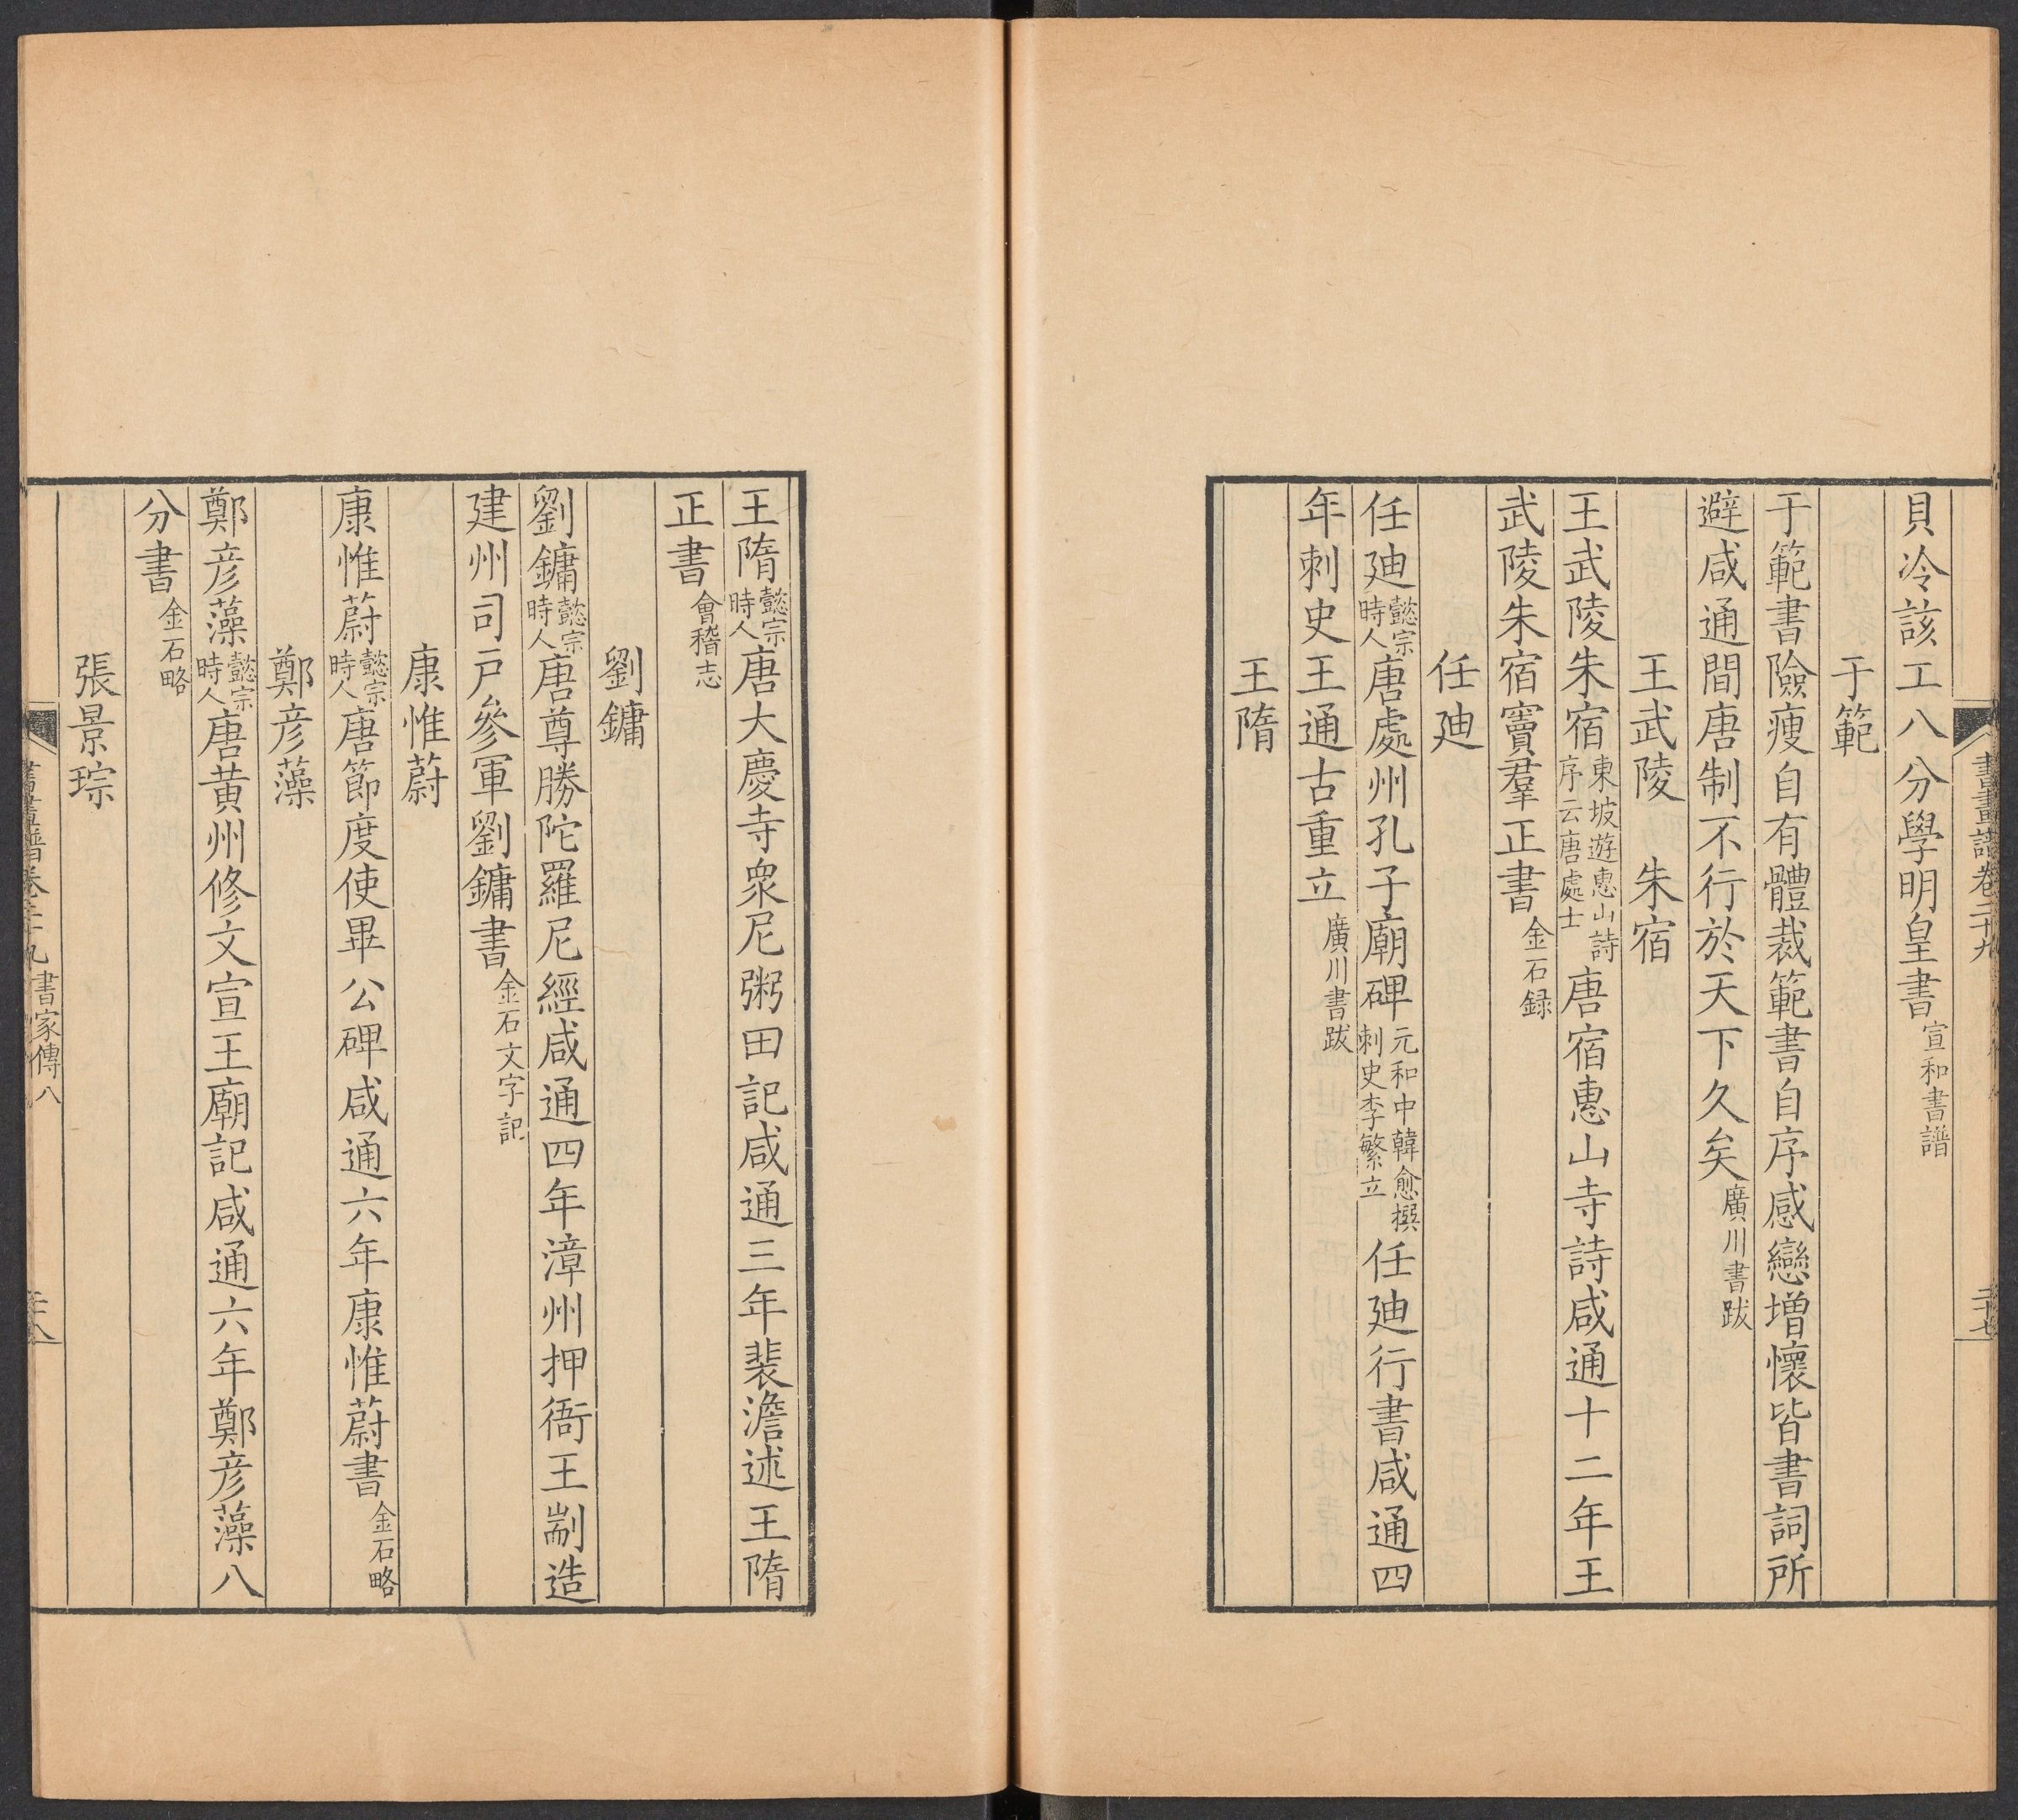 書畫譜卷二十九 二十七
貝冷該工八分學明皇書宣和書譜
于範
于範書險瘦自有體裁範書自序感戀增懷皆書詞所
避咸通間唐制不行於天下久矣廣川書跋
王武陵 朱宿
王武陵朱宿東坡遊惠山詩序云唐處士唐宿惠山寺詩咸通十二年王
武陵朱宿竇羣正書金石録
任廸
任廸懿宗時人唐處州孔子廟碑元和中韓愈撰刺史李繁立任廸行書咸通四
年刺史王通古重立廣川書跋
王隋
王隋懿宗時人唐大慶寺衆尼粥田記咸通三年裴澹述王隋
正書會稽志
劉鏞
劉鏞懿宗時人唐尊勝陀羅尼經咸通四年漳州押衙王剬造
建州司戶參軍劉鏞書金石文字記
康惟蔚
康惟蔚懿宗時人唐節度使畢公碑咸通六年康惟蔚書金石略
鄭彦藻
鄭彦藻懿宗時人唐黄州修文宣王廟記咸通六年鄭彦藻八
分書金石略
張景琮
書畫譜卷二十九 書家傳八 二十八